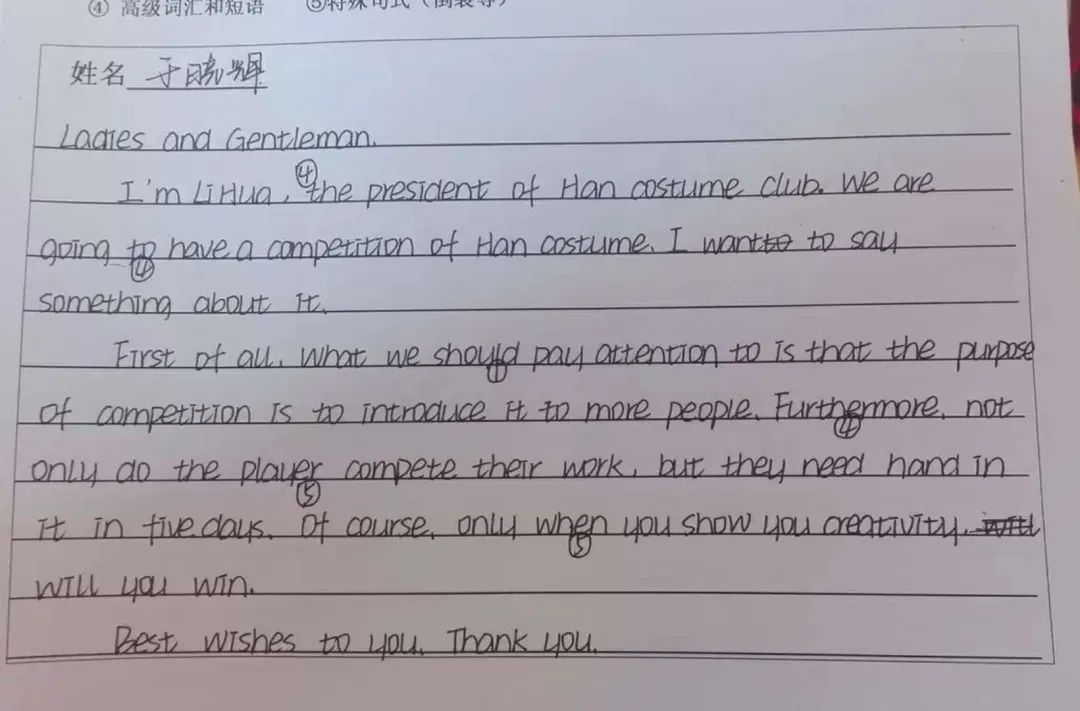 ④ 高级词汇和短语 ⑤特殊句式（倒装等）
姓名 于晓辉
Ladies and Gentleman.
I'm Li Hua, ④ the president of Han costume club. We are
going to have a competition of Han costume. I want to say
④
something about it.
First of all, what we should pay attention to is that the purpose
①
of competition is to introduce it to more people. Furthermore, not
④
only do the player compete their work, but they need hand in
⑤
it in five days. Of course, only when you show you creativity,
⑤
will you win.
Best wishes to you. Thank you.